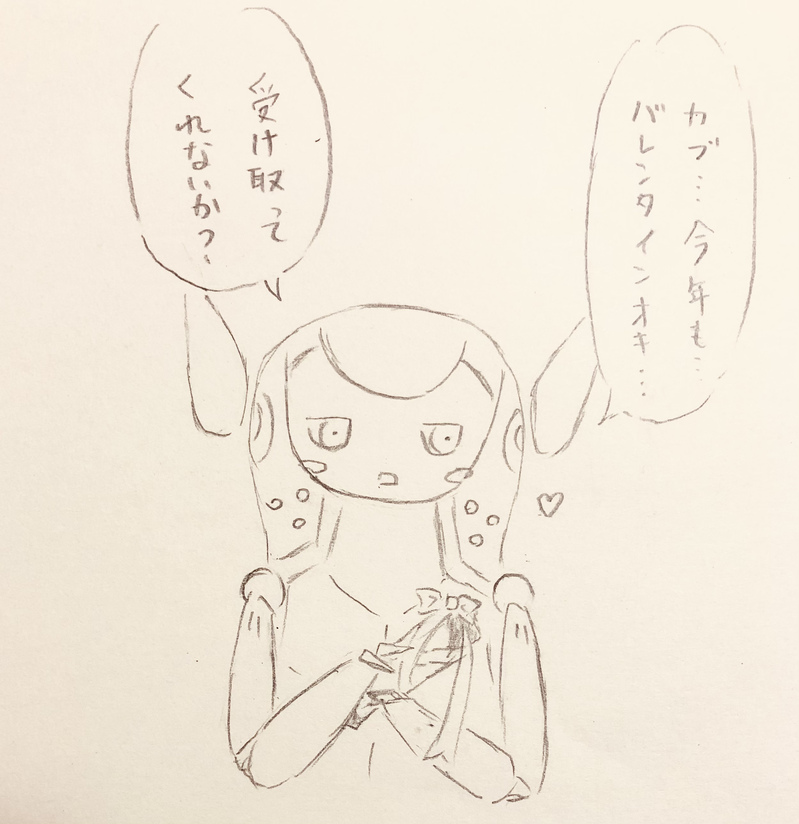 カブ…今年も…
バレンタインオキ…
受け取って
くれないか?